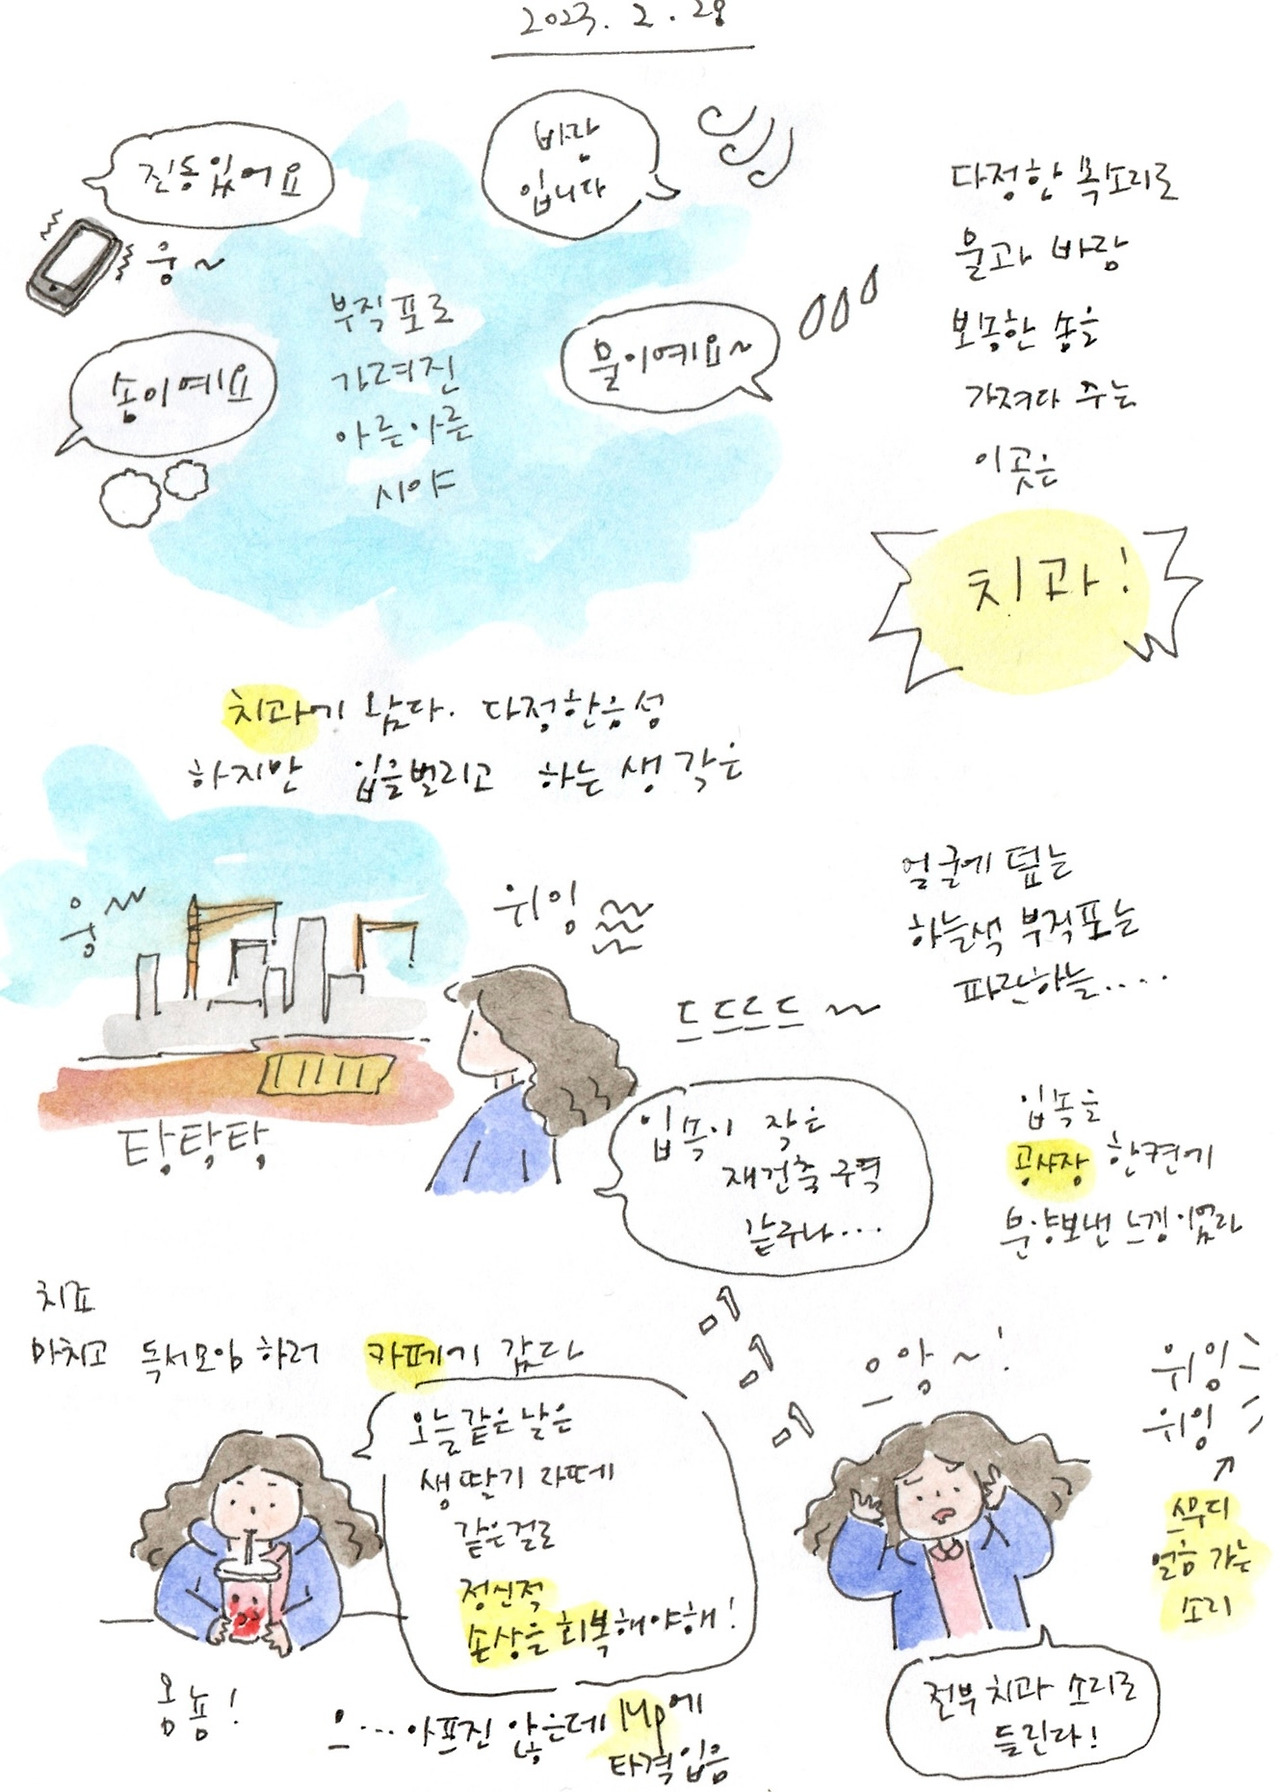 2023. 2. 28
진동있어요
웅~
바람
입니다
부직포로
가려진
아른아른
시야
물이예요~
솜이예요
다정한 목소리로
물과 바람
보송한 솜을
가져다 주는
이곳은
치과!
치과에 왔다. 다정한음성
하지만 입을벌리고 하는 생각은
웅~
위잉
드드르드~
탕탕탕
입속이 작은
재건축 구역
같구나...
얼굴에 덮는
하늘색 부직포는
파란하늘....
입속을
공사장 한켠에
분양보낸 느낌이었다
치료
마치고 독서모임 하러 카페에 갔다
오늘같은 날은
생딸기 라떼
같은걸로
정신적
손상을 회복해야해!
옴뇸!
으...아프진 않은데 hp에
타격입음
으앙~!
위잉
위잉
스무디
얼음 가는
소리
전부치과 소리로
들린다!